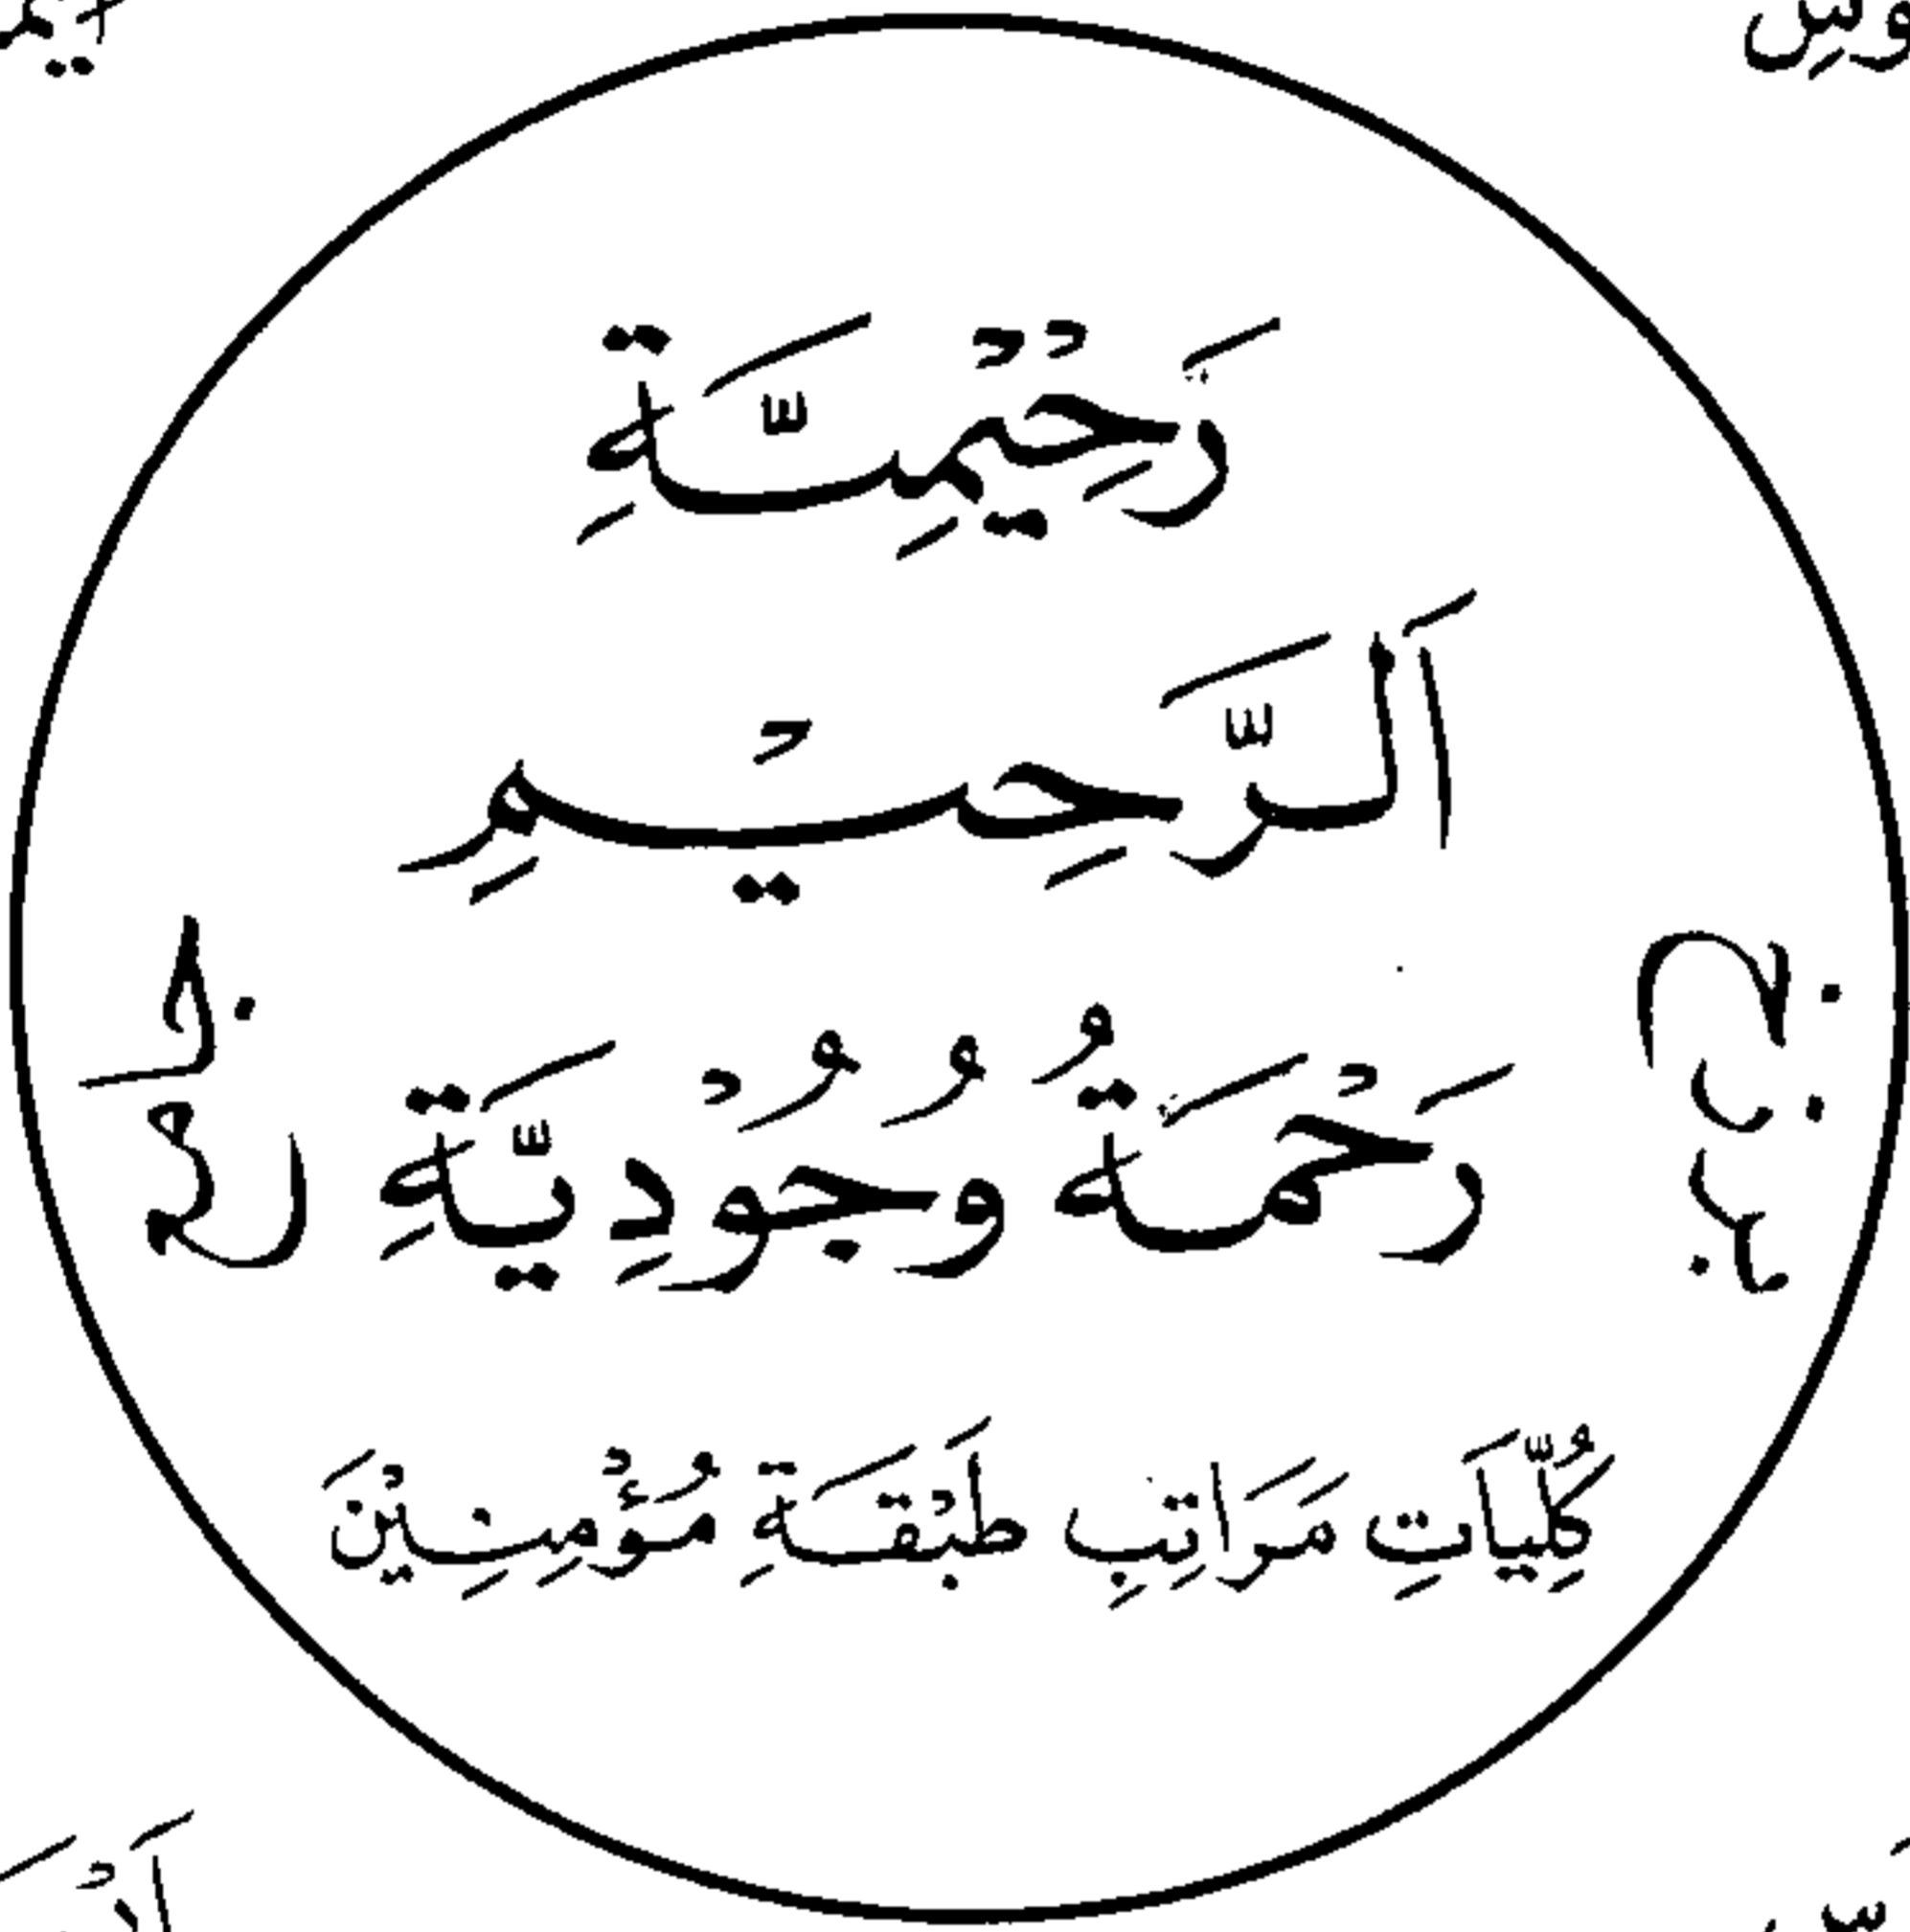 رَحْيْمِيَّةِ
اَلرَّحِيْمِ
رَحْمَةُ وُجُوْدِيَّةِ
كُلِّيَّاتِ مَرَاتِبِ طَبْقَةِ مُؤْمِنِيْنَ